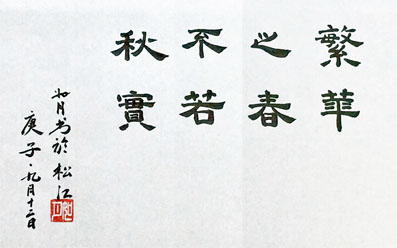 繁華
之春
不若
秋實
如月书於松江
庚子·九月十二日